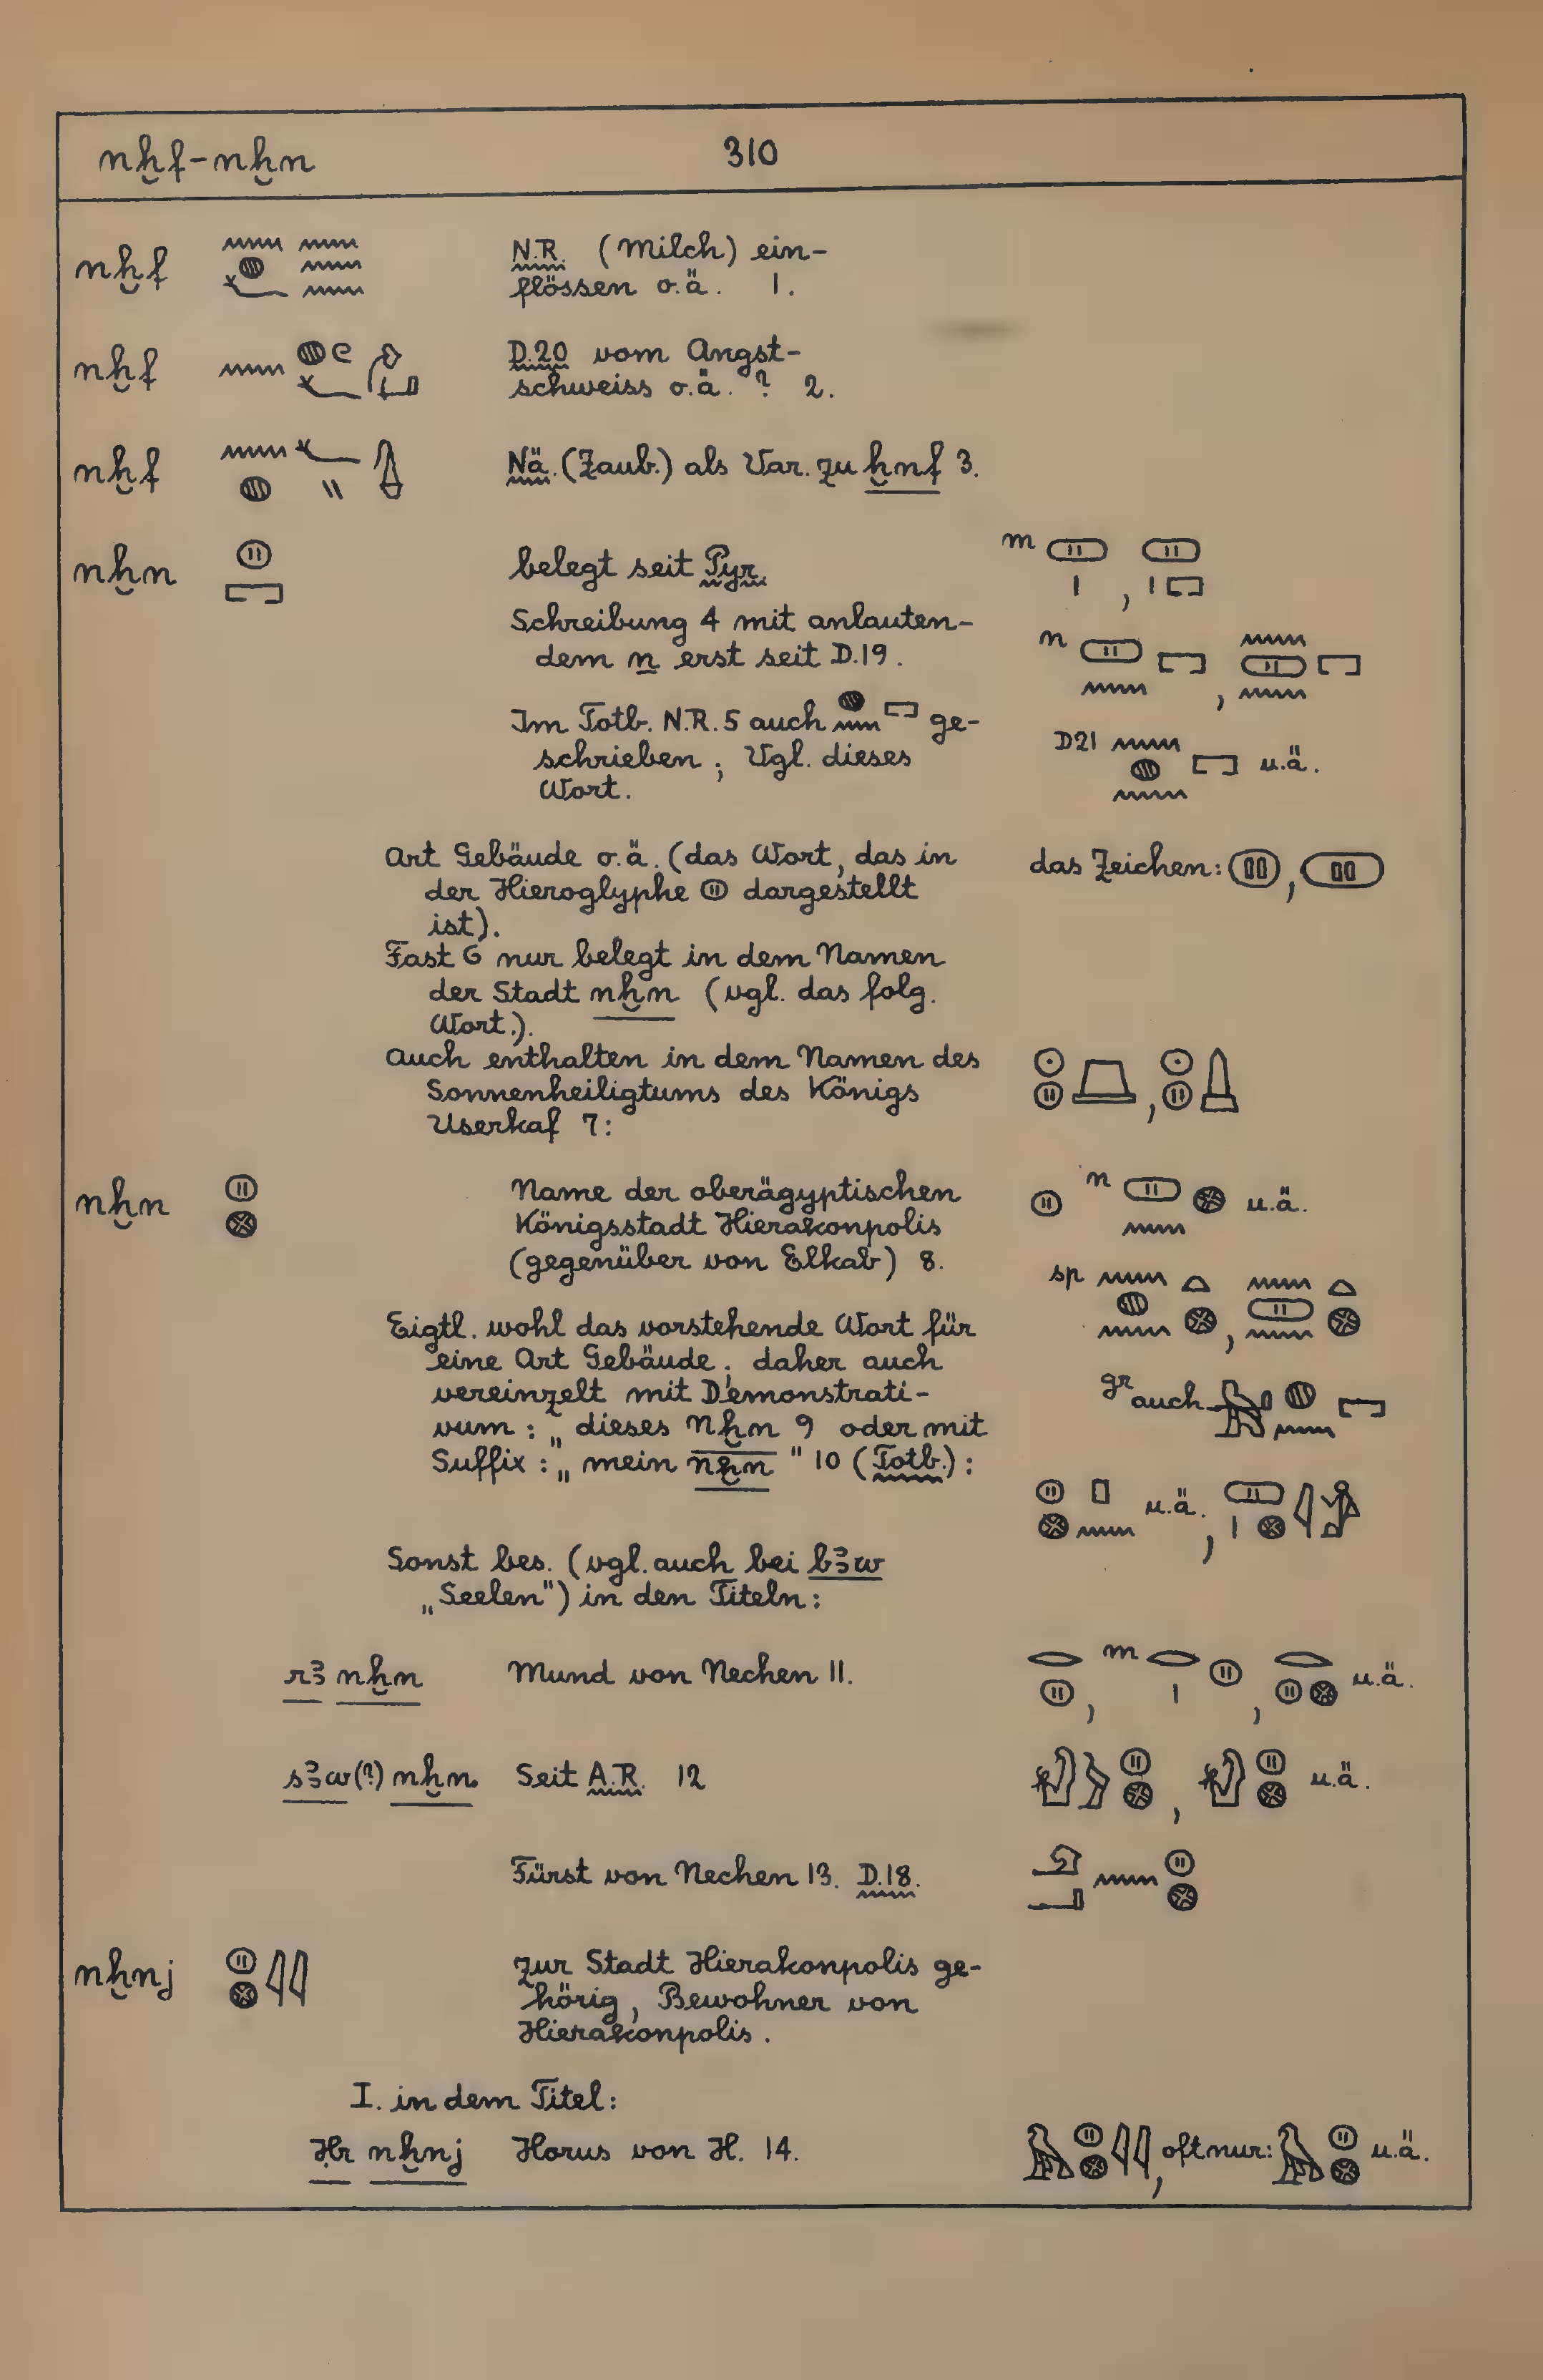 nḫf-nḫn 310
nḫf N.R. (Milch) ein-
flössen o.ä. 1.
nḫf D.20 vom Angst-
schweiss o.ä. ? 2.
nḫf Nä. (Zaub.) als Var. zu ḫnf 3.
nḫn belegt seit Pyr. m ,
Schreibung 4 mit anlauten-
dem n erst seit D.19. n ,
Im Totb. N.R. 5 auch ge-
schrieben; Vgl. dieses D21 u.ä.
Wort.
Art Gebäude o.ä. (das Wort, das in das Zeichen: ,
der Hieroglyphe dargestellt
ist).
Fast 6 nur belegt in dem Namen
der Stadt nḫn (vgl. das folg.
Wort.).
Auch enthalten in dem Namen des
Sonnenheiligtums des Königs ,
Userkaf 7:
nḫn Name der oberägyptischen n u.ä.
Königsstadt Hierakonpolis
(gegenüber von Elkab) 8. sp ,
Eigtl. wohl das vorstehende Wort für
eine Art Gebäude; daher auch
vereinzelt mit Demonstrati- gr auch
vum: „dieses nḫn 9 oder mit
Suffix: „mein nḫn" 10 (Totb.): u.ä.,
Sonst bes. (vgl. auch bei bꜣw
„Seelen") in den Titeln:
rꜣ nḫn Mund von Nechen 11. , m , u.ä.
sꜣw(?) nḫn. Seit A.R. 12 , u.ä.
Fürst von Nechen 13. D.18.
nḫnj zur Stadt Hierakonpolis ge-
hörig, Bewohner von
Hierakonpolis.
I. in dem Titel:
Ḥr nḫnj Horus von H. 14. , oft nur: u.ä.